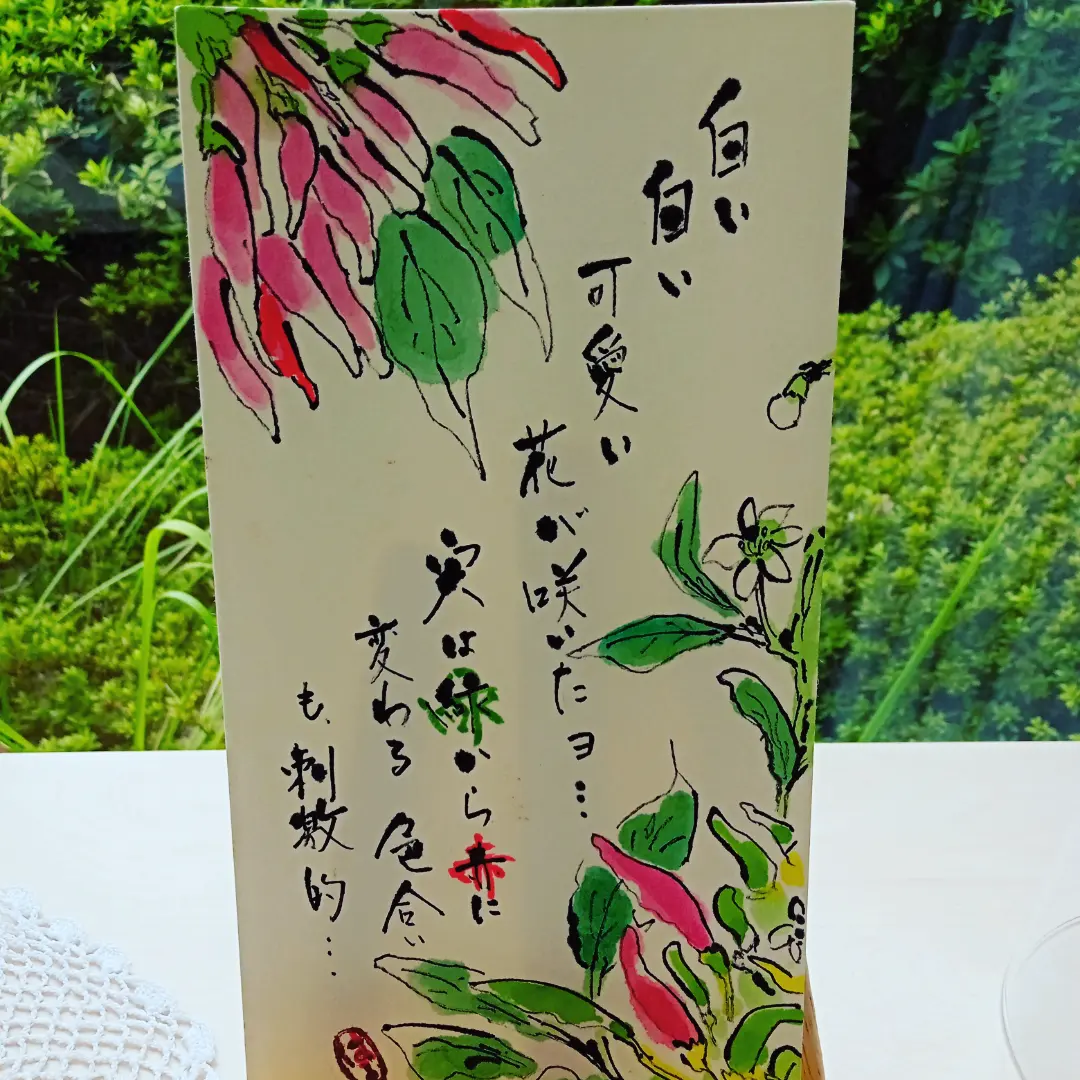 白い
白い
可愛い
花が咲いたヨ…
実は緑から赤に
変わる色合い
も、刺激的…